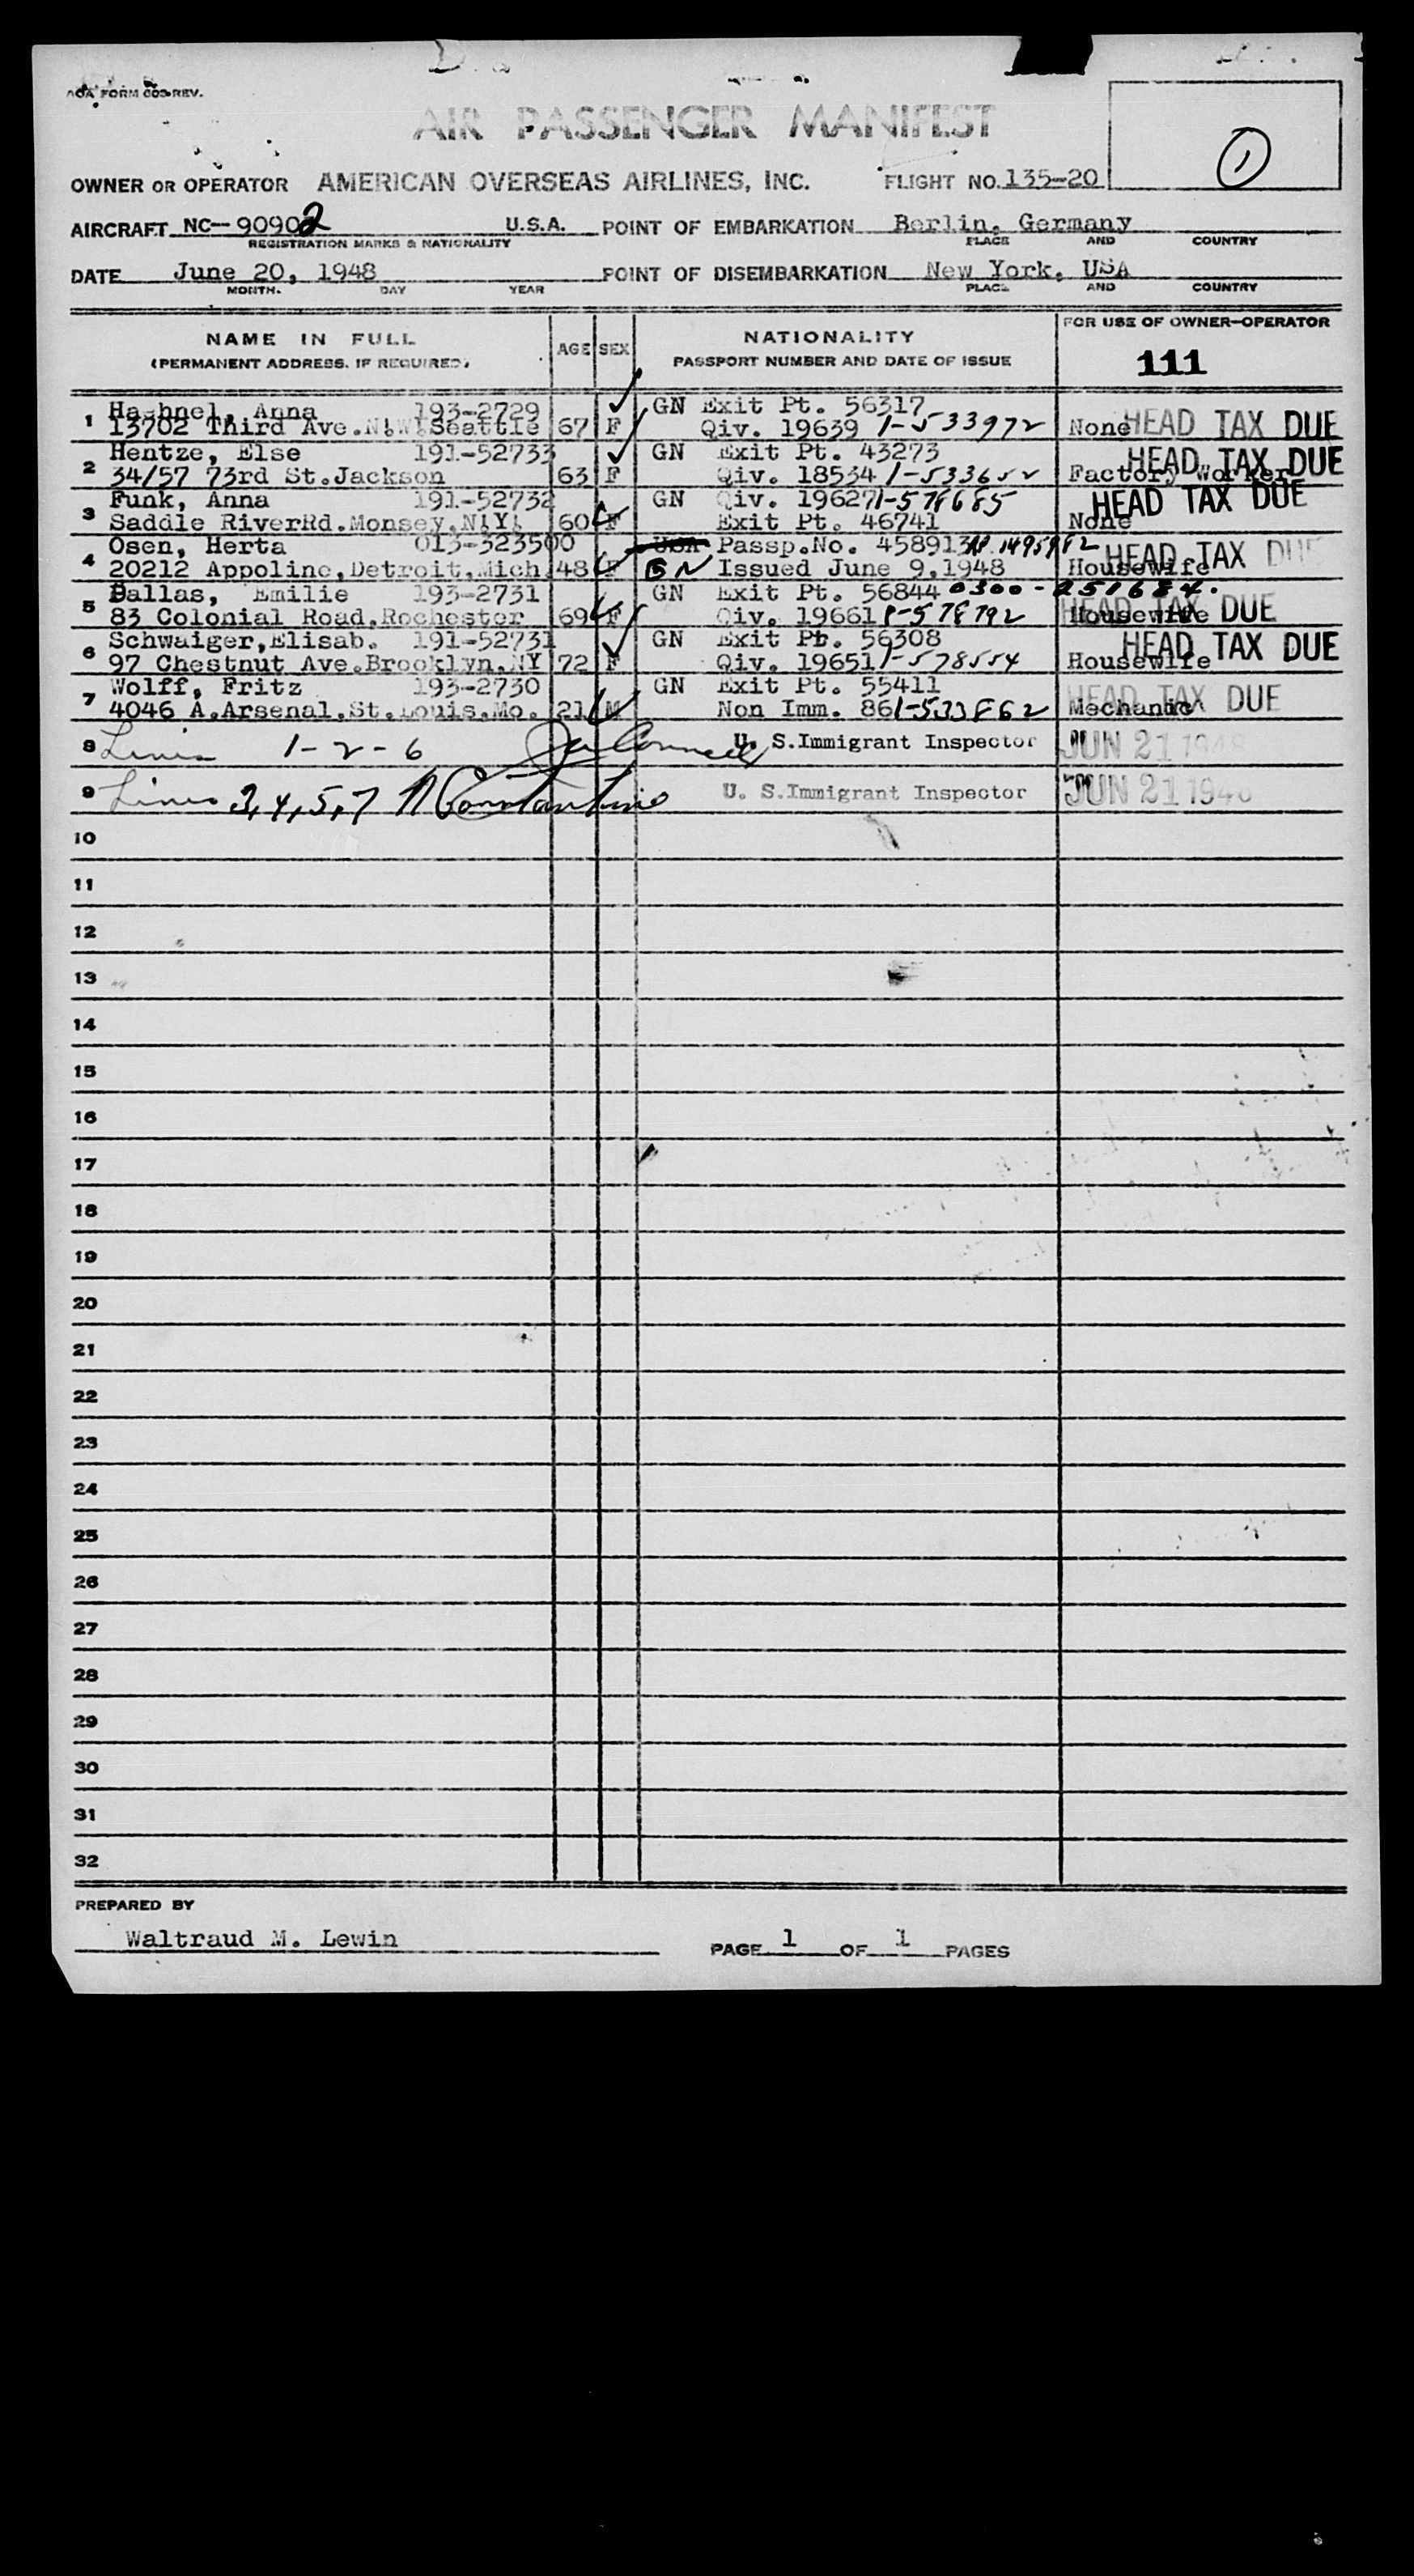 AOA FORM 603-REV.
AIR PASSENGER MANIFEST
1
OWNER OR OPERATOR AMERICAN OVERSEAS AIRLINES, INC. FLIGHT NO. 135-20
AIRCRAFT NC-- 90902 U.S.A. POINT OF EMBARKATION Berlin, Germany
REGISTRATION MARKS & NATIONALITY PLACE AND COUNTRY
DATE June 20, 1948 POINT OF DISEMBARKATION New York, USA
MONTH. DAY YEAR PLACE AND COUNTRY
NAME IN FULL AGE SEX NATIONALITY FOR USE OF OWNER-OPERATOR
(PERMANENT ADDRESS, IF REQUIRED) PASSPORT NUMBER AND DATE OF ISSUE 111
1 Haehnel, Anna 193-2729 GN Exit Pt. 56317
13702 Third Ave.N.W.Seattle 67 F Qiv. 19639 1-533972 None HEAD TAX DUE
2 Hentze, Else 191-52733 GN Exit Pt. 43273
34/57 73rd St.Jackson 63 F Qiv. 18534 1-533652 Factory Worker HEAD TAX DUE
3 Funk, Anna 191-52732 GN Qiv. 19627 1-578685 HEAD TAX DUE
Saddle RiverRd.Monsey,N.Y. 60 F Exit Pt. 46741 None
4 Osen, Herta 013-323500 USA Passp.No. 458913 1495982
20212 Appoline,Detroit,Mich. 48 F GN Issued June 9,1948 Housewife HEAD TAX DUE
5 Dallas, Emilie 193-2731 GN Exit Pt. 56844 0300-251684.
83 Colonial Road,Rochester 69 F Qiv. 19661 1-578792 Housewife HEAD TAX DUE
6 Schwaiger,Elisab. 191-52731 GN Exit Pt. 56308
97 Chestnut Ave.Brooklyn,NY 72 F Qiv. 19651 1-578554 Housewife HEAD TAX DUE
7 Wolff, Fritz 193-2730 GN Exit Pt. 55411
4046 A.Arsenal,St.Louis,Mo. 21 M Non Imm. 86 1-533862 Mechanic HEAD TAX DUE
8 Lines 1-2-6 U. S.Immigrant Inspector JUN 21 1948
9 Lines 3,4,5,7 U. S.Immigrant Inspector JUN 21 1948
10
11
12
13
14
15
16
17
18
19
20
21
22
23
24
25
26
27
28
29
30
31
32
PREPARED BY
Waltraud M. Lewin PAGE 1 OF 1 PAGES